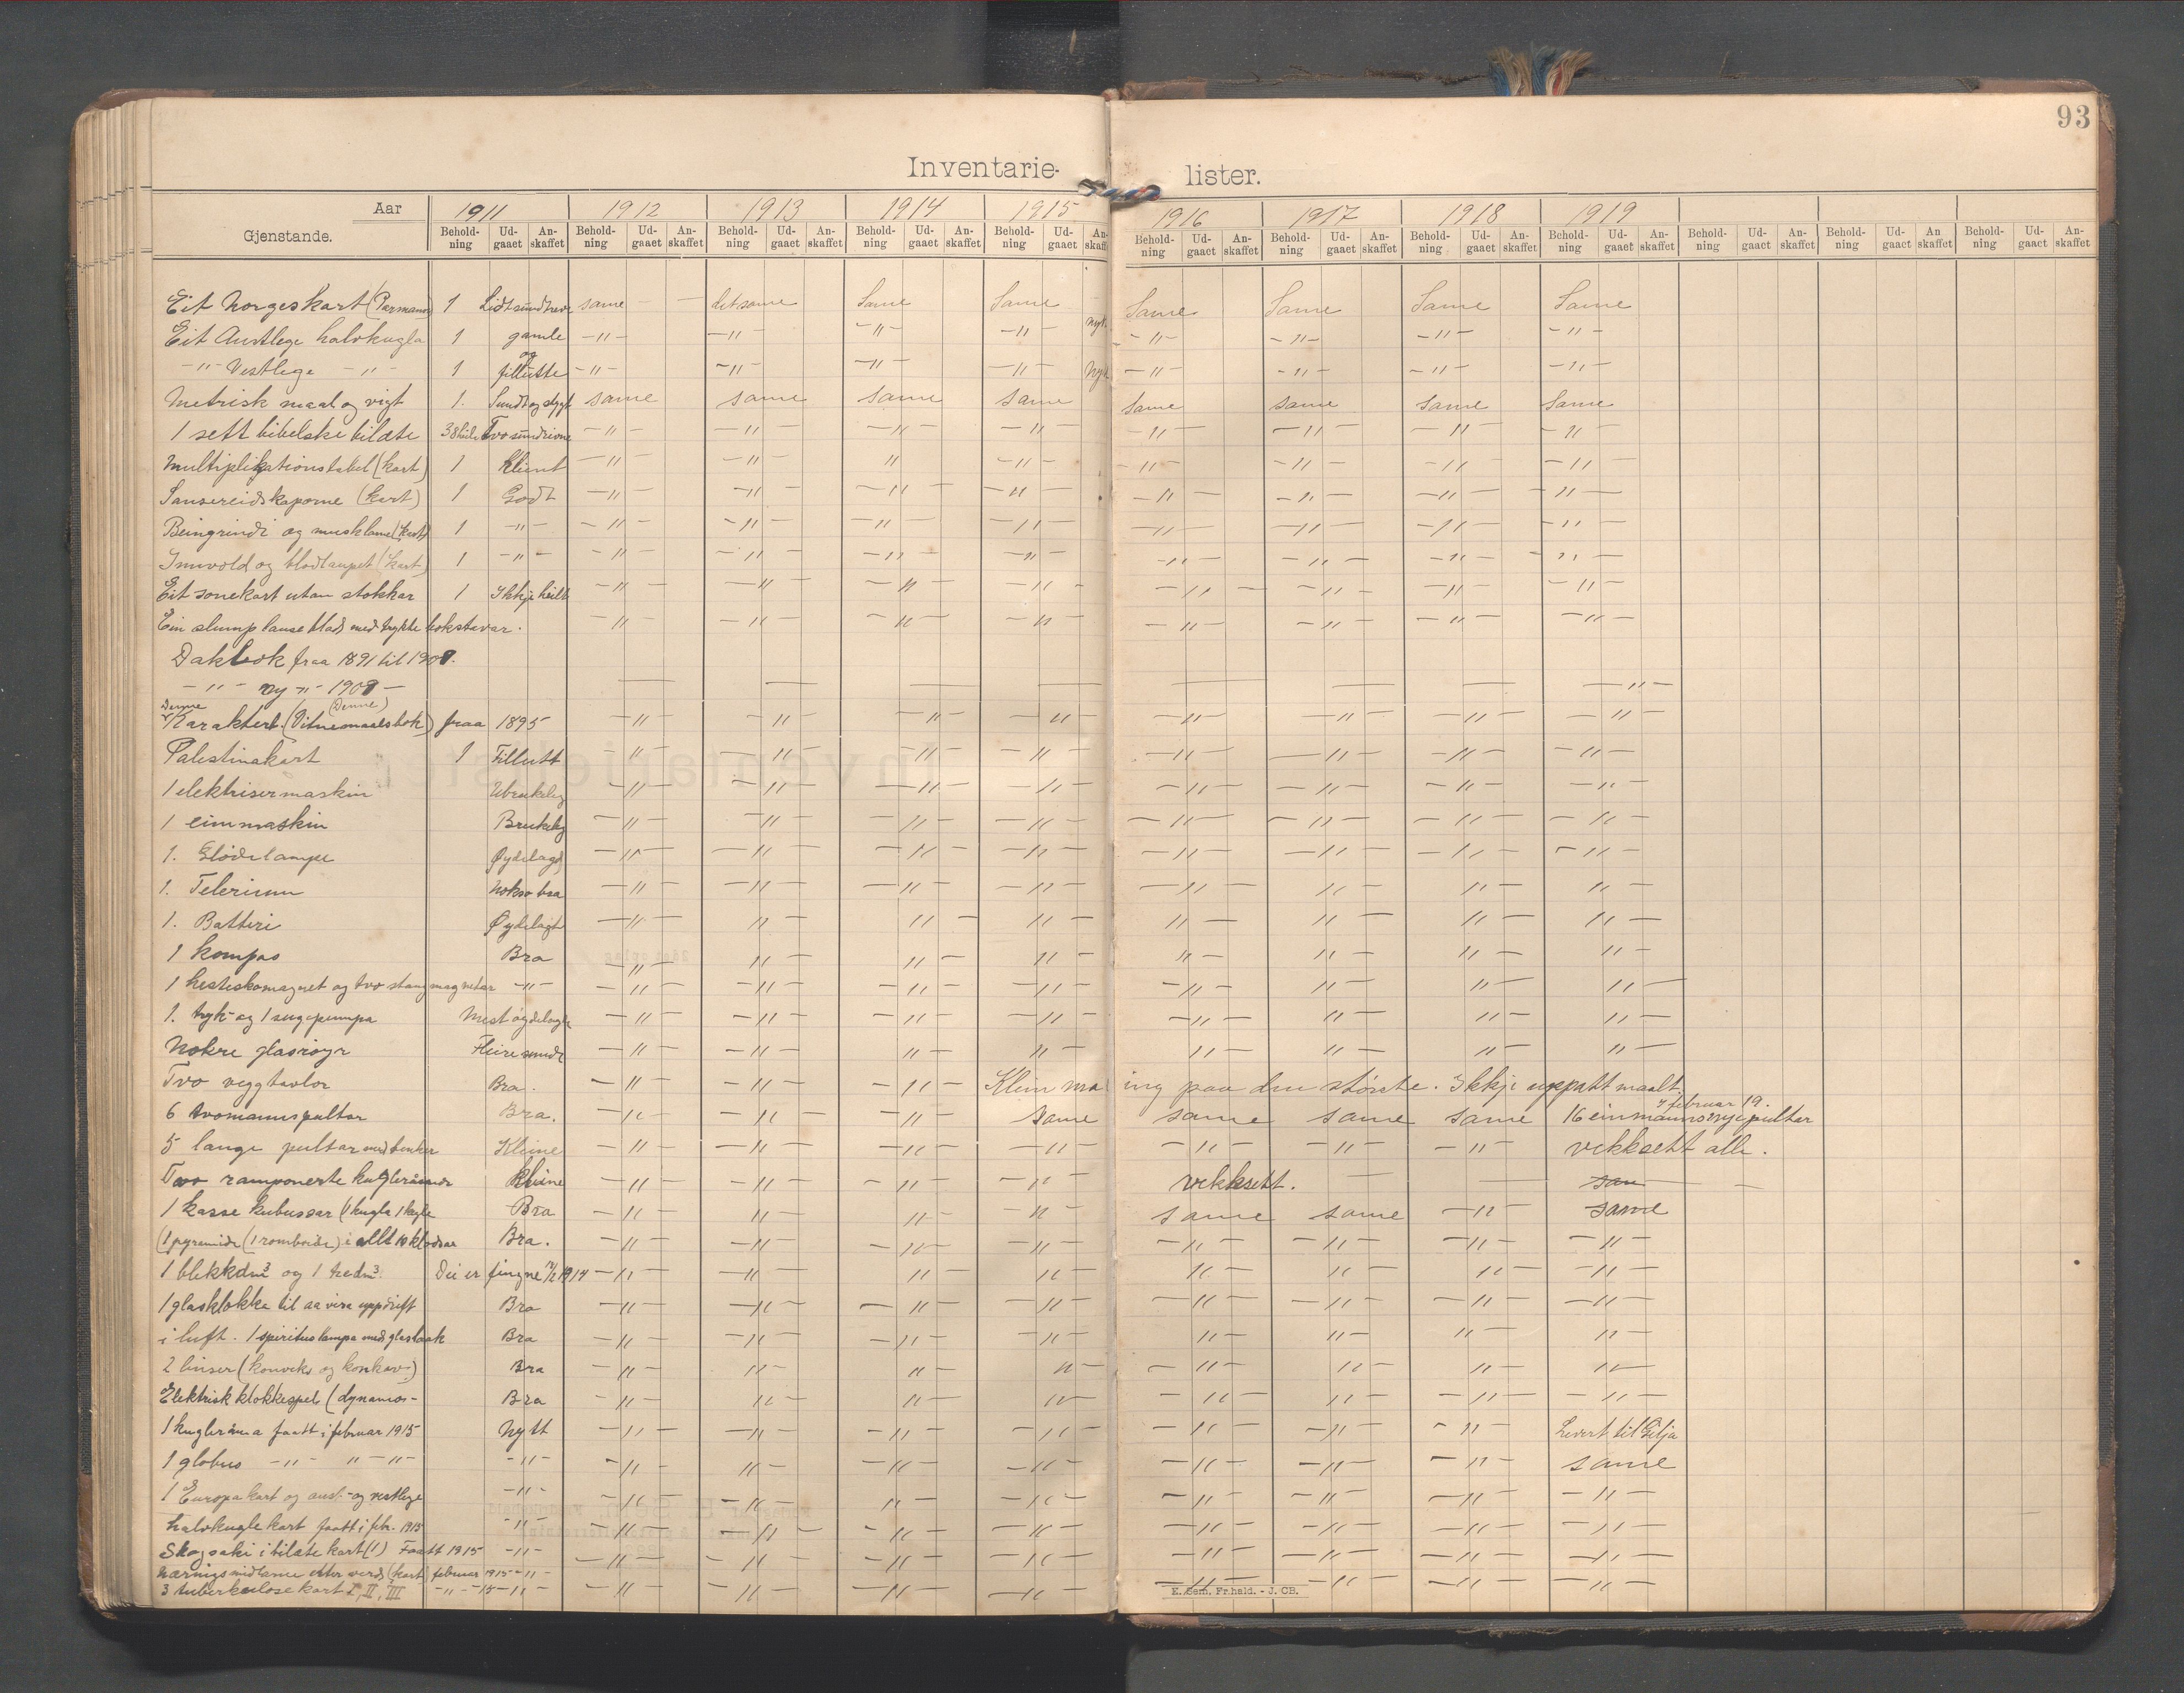 93
Inventarie- lister.
Aar 1911 1912 1913 1914 1915 1916 1917 1918 1919
Gjenstande. Behold-ning Ud-gaaet An-skaffet Behold-ning Ud-gaaet An-skaffet Behold-ning Ud-gaaet An-skaffet Behold-ning Ud-gaaet An-skaffet Behold-ning Ud-gaaet An-skaff Behold-ning Ud-gaaet An-skaffet Behold-ning Ud-gaaet An-skaffet Behold-ning Ud-gaaet An-skaffet Behold-ning Ud-gaaet An-skaffet Behold-ning Ud-gaaet An-skaffet Behold-ning Ud-gaaet An-skaffet Behold-ning Ud-gaaet An-skaffet
Eit Norgeskart 1 same det same Same Same Same Same Same Same
Eit Austlege halvkugla 1 gamle og -"- -"- -"- -"- nyt. -"- -"- -"- -"-
-"- Vestlege -"- 1 fillutte -"- -"- -"- -"- Nyt -"- -"- -"- -"-
Metrisk maal og vigt 1. Sundt og stygt same same same same same same same same
1 sett bibelske bilæte 38 Tvo sundrivne -"- -"- -"- -"- -"- -"- -"- -"-
Multiplikationstabel (kart) 1 Kleint -"- -"- " -"- -"- -"- -"- -"-
Sansereidskaporne (kart) 1 Godt -"- -"- -"- -"- -"- -"- -"- -"-
Beingrindi og musklane (kart) 1 -"- -"- -"- -"- -"- -"- -"- -"- -"-
Innvold og blodlaupet (kart) 1 -"- -"- -"- -"- -"- -"- -"- -"- -"-
Eit sonekart utan stokkar 1 Ikkje heilt -"- -"- -"- -"- -"- -"- -"- -"-
Ein slump lause blad med trykte bokstavar. -"- -"- -"- -"- -"- -"- -"- -"-
Dakbok fraa 1891 til 1908.
-"- ny -"- 1908 - -"-
Denne (Denne)
Karakterb. (Vitnemaalsbok) fraa 1895 -"- -"- -"- -"- -"- -"- -"- -"-
Palestinakart 1 Fillutt -"- -"- -"- -"- -"- -"- -"- -"-
1 elektrisermaskin Ubrukeleg -"- -"- -"- -"- -"- -"- -"- -"-
1 eimmaskin Brukeleg -"- -"- -"- -"- -"- -"- -"- -"-
1. Glødelampe Øydelagd -"- -"- -"- -"- -"- -"- -"- -"-
1. Telerium Nokso bra -"- -"- -"- -"- -"- "- "- "-
1. Batteri Øydelagt -"- "- "- "- "- "- "- "-
1 kompas Bra -"- "- "- "- "- "- "- "-
1 hesteskomagnet og tvo stangmagnetar -"- -"- -"- -"- -"- -"- "- "- "-
1. tryk- og 1 sugepumpa Mest øydelagde -"- -"- -"- -"- -"- "- "- "-
Nokre glasrøyr Fleire sunde -"- -"- "- "- "- "- "- "-
Tvo veggtavlor Bra. -"- -"- -"- Klein maling paa den største. Ikkje uppatt maalt.
6 tvomannspultar Bra. -"- -"- -"- same same same same februar 19. 16 einmanns nye pultar
5 lange pultar med benker Kleine -"- -"- -"- -"- -"- -"- -"- vekksett alle.
Tvo ramponerte kugleråmor Kleine -"- -"- -"- -"- vekksett. -
1 kasse kubussar (1 kugla 1 kjegle Bra -"- -"- "- "- same same -"- same
(1 pyramide (1 romboide) i allt 10 klodsar Bra. -"- -"- -"- -"- -"- -"- -"- -"-
1 blekkdm³ og 1 tredm³. Dei er fingne 1914 -"- "- "- "- "- "- "- -"-
1 glasklokke til aa visa uppdrift Bra -"- -"- -"- -"- -"- -"- -"- -"-
i luft. 1 spirituslampa med glaslaak Bra -"- -"- -"- -"- "- "- "- "-
2 linser (konveks og konkav) Bra -"- "- " "- -"- "- "- "-
Elektrisk klokkespel (dynamos- Bra -"- "- "- "- -"- -"- -"- -"-
1 kugleråma faatt i februar 1915 Nytt -"- -"- -"- -"- -"- -"- -"- Levert til Gilja
1 globus -"- " -"- -"- -"- "- -"- -"- -"- -"- -"- same
1 Europakart og aust- og vestlege -"- -"- -"- "- -"- -"- -"- -"- -"-
halvkugle kart faatt i febr. 1915 -"- -"- -"- -"- -"- -"- -"- -"- -"-
Skogsaki i bilæte kart (1) Faatt 1915 -"- -"- -"- -"- -"- -"- -"- -"- -"-
Næringsmidlarne etter verd (kart) februar 1915 -"-
3 tuberkulose kart I, II, III -"- -15 -"- -"- -"- -"- -"- -"- -"- -"- -"-
E. Sem. Fr.hald. - J. CB.